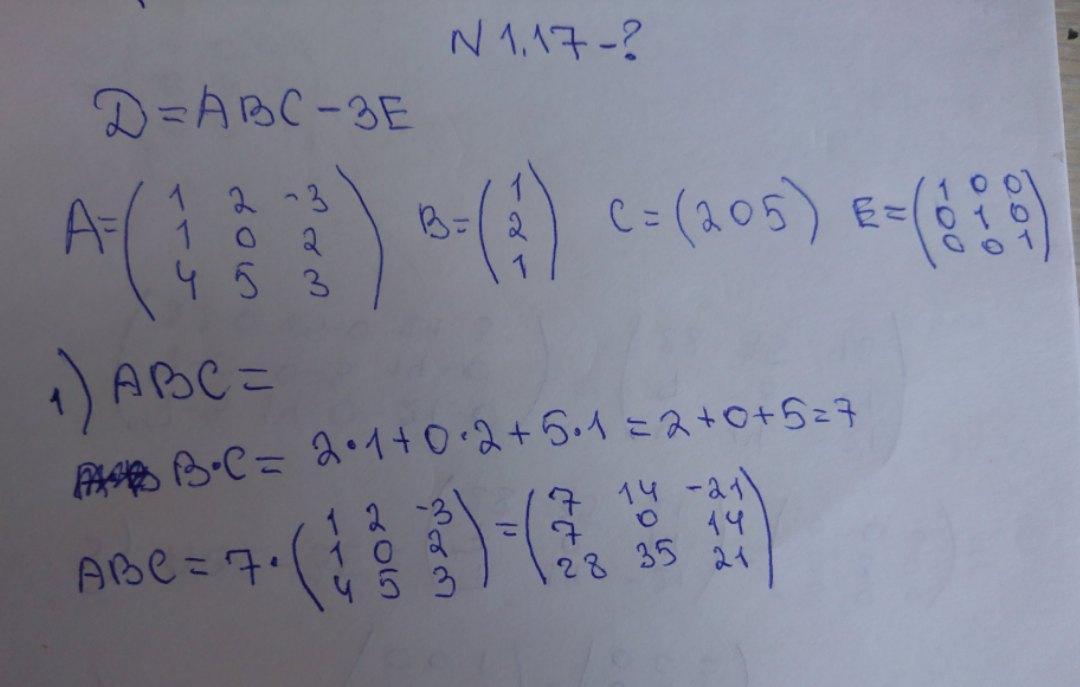 N 1.17-?
D=ABC-3E
A=(1 2 -3
1 0 2
4 5 3) B=(1
2
1) C=(2 0 5) E=(1 0 0
0 1 0
0 0 1)
1) ABC=
B·C= 2·1+0·2+5·1=2+0+5=7
ABC=7·(1 2 -3
1 0 2
4 5 3)=(7 14 -21
7 0 14
28 35 21)